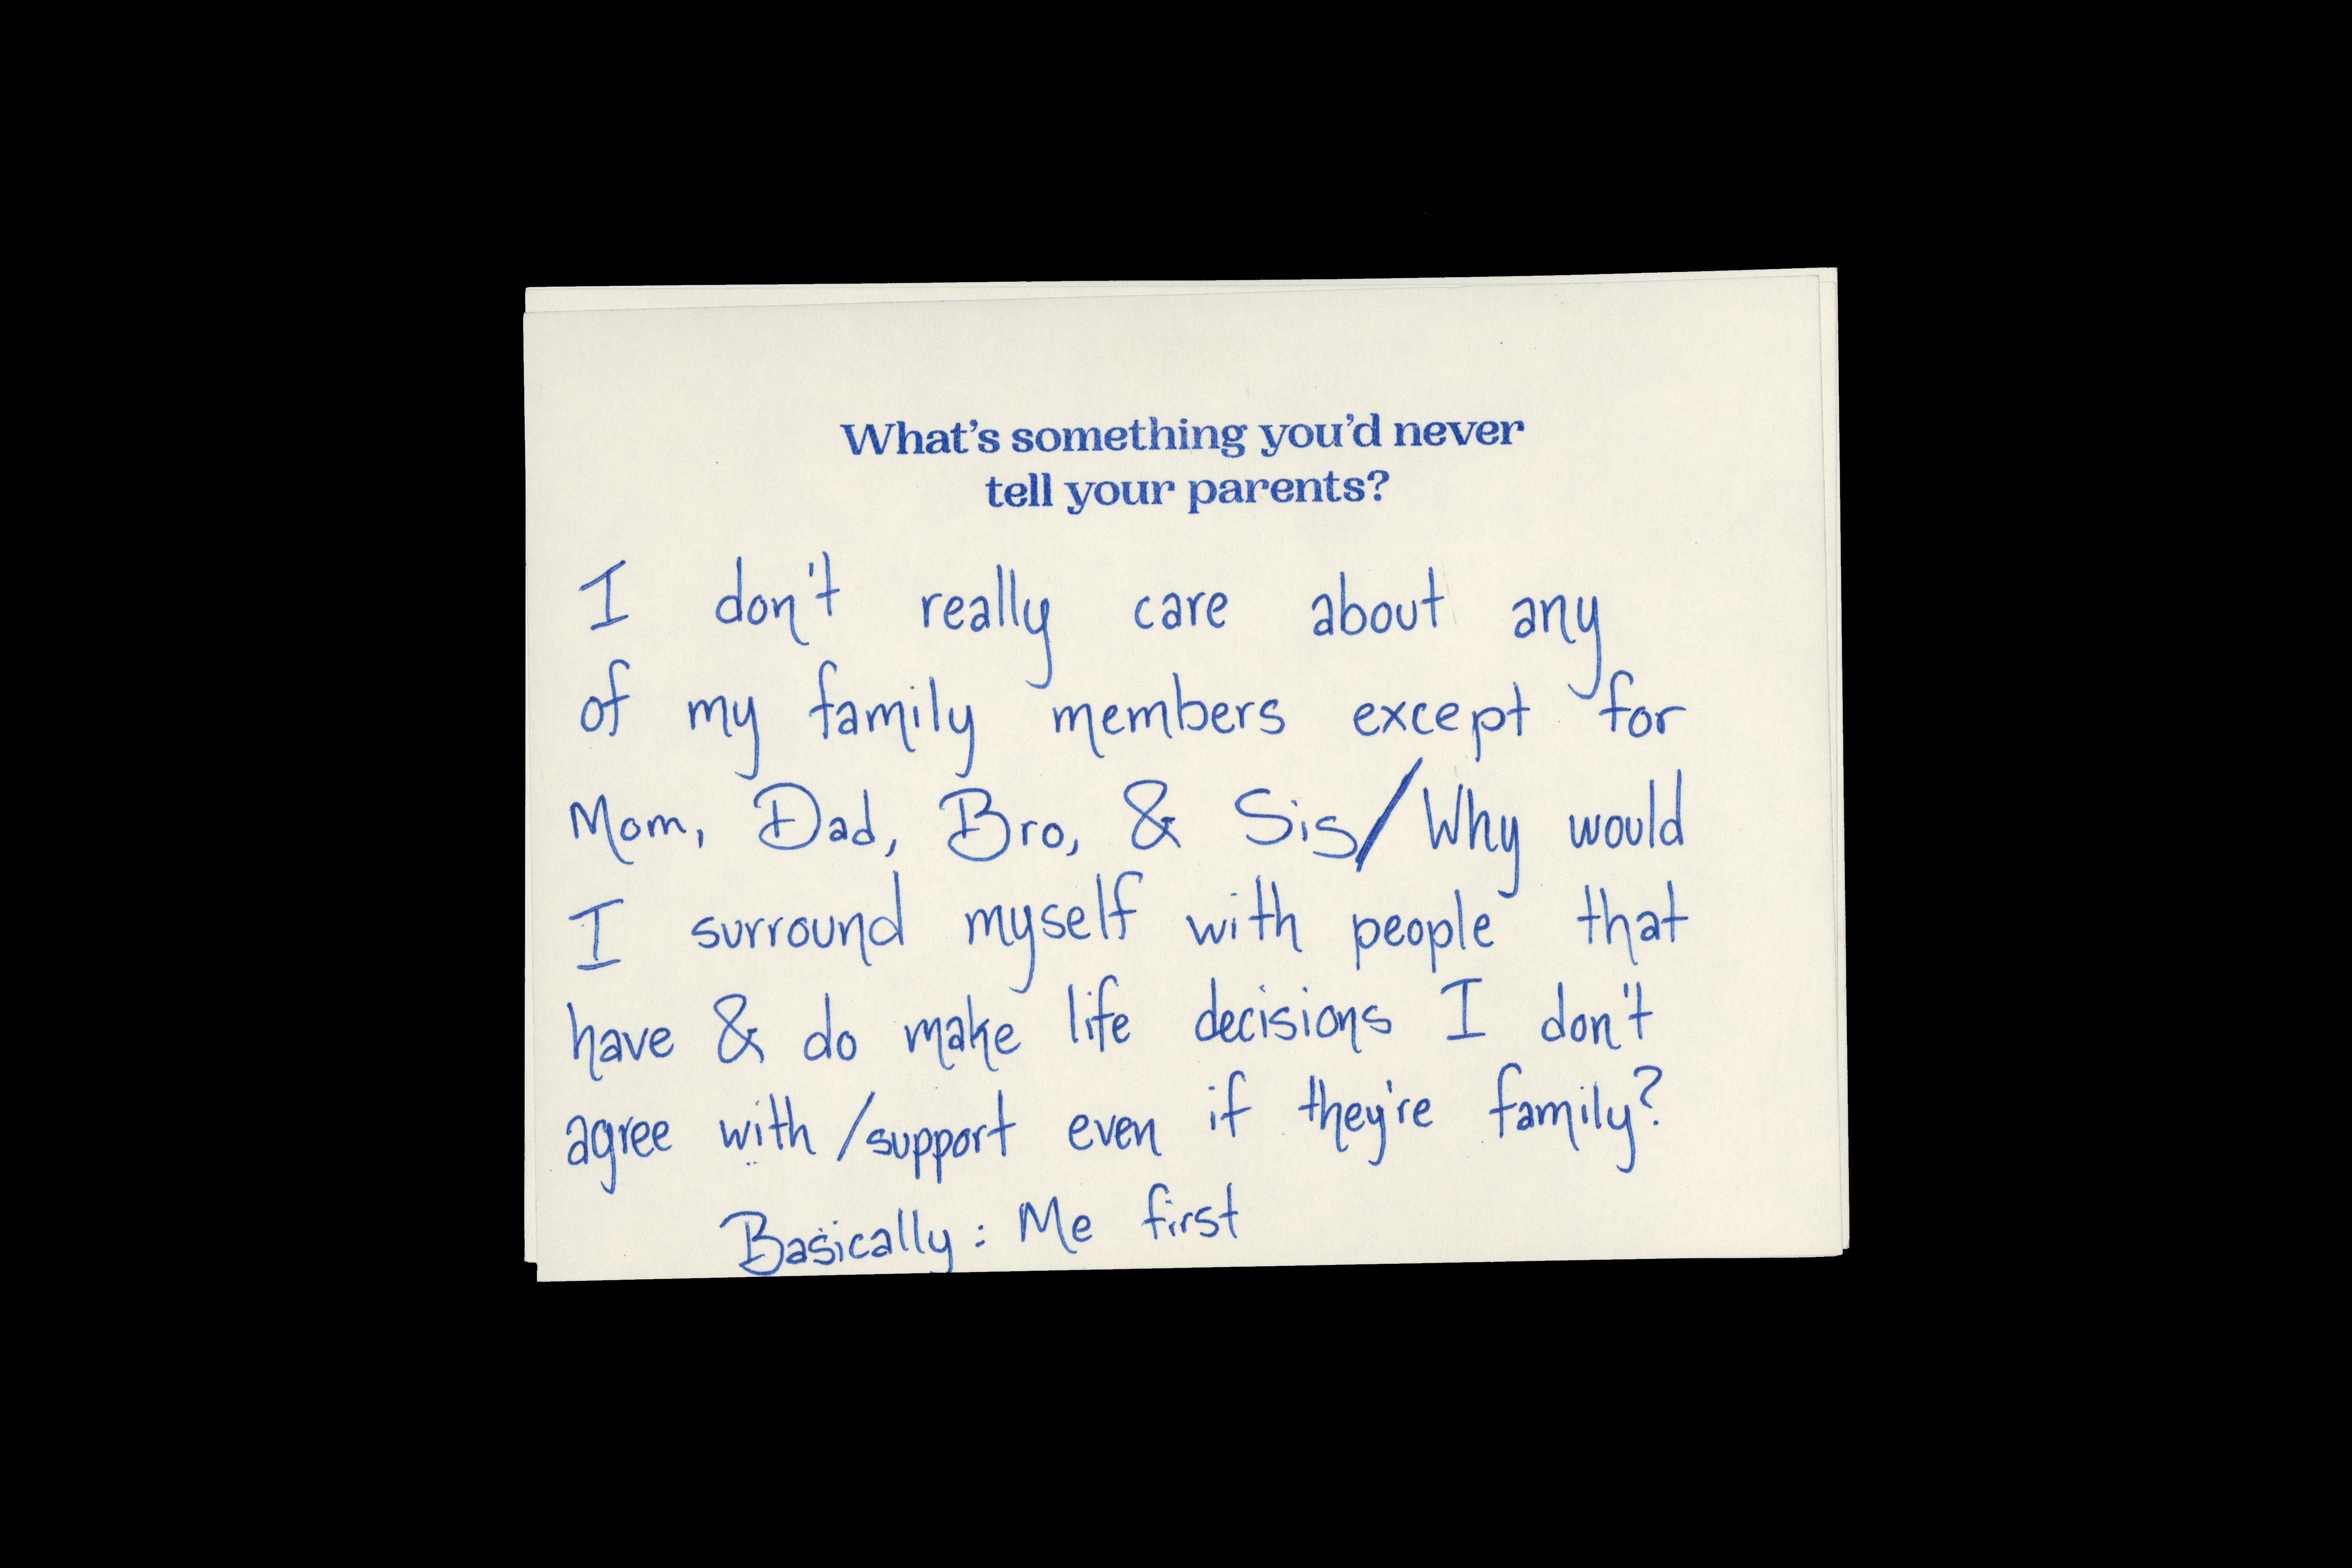 What's something you'd never
tell your parents?
I don't really care about any
of my family members except for
Mom, Dad, Bro, & Sis/Why would
I surround myself with people that
have & do make life decisions I don't
agree with/support even if they're family?
Basically: Me first